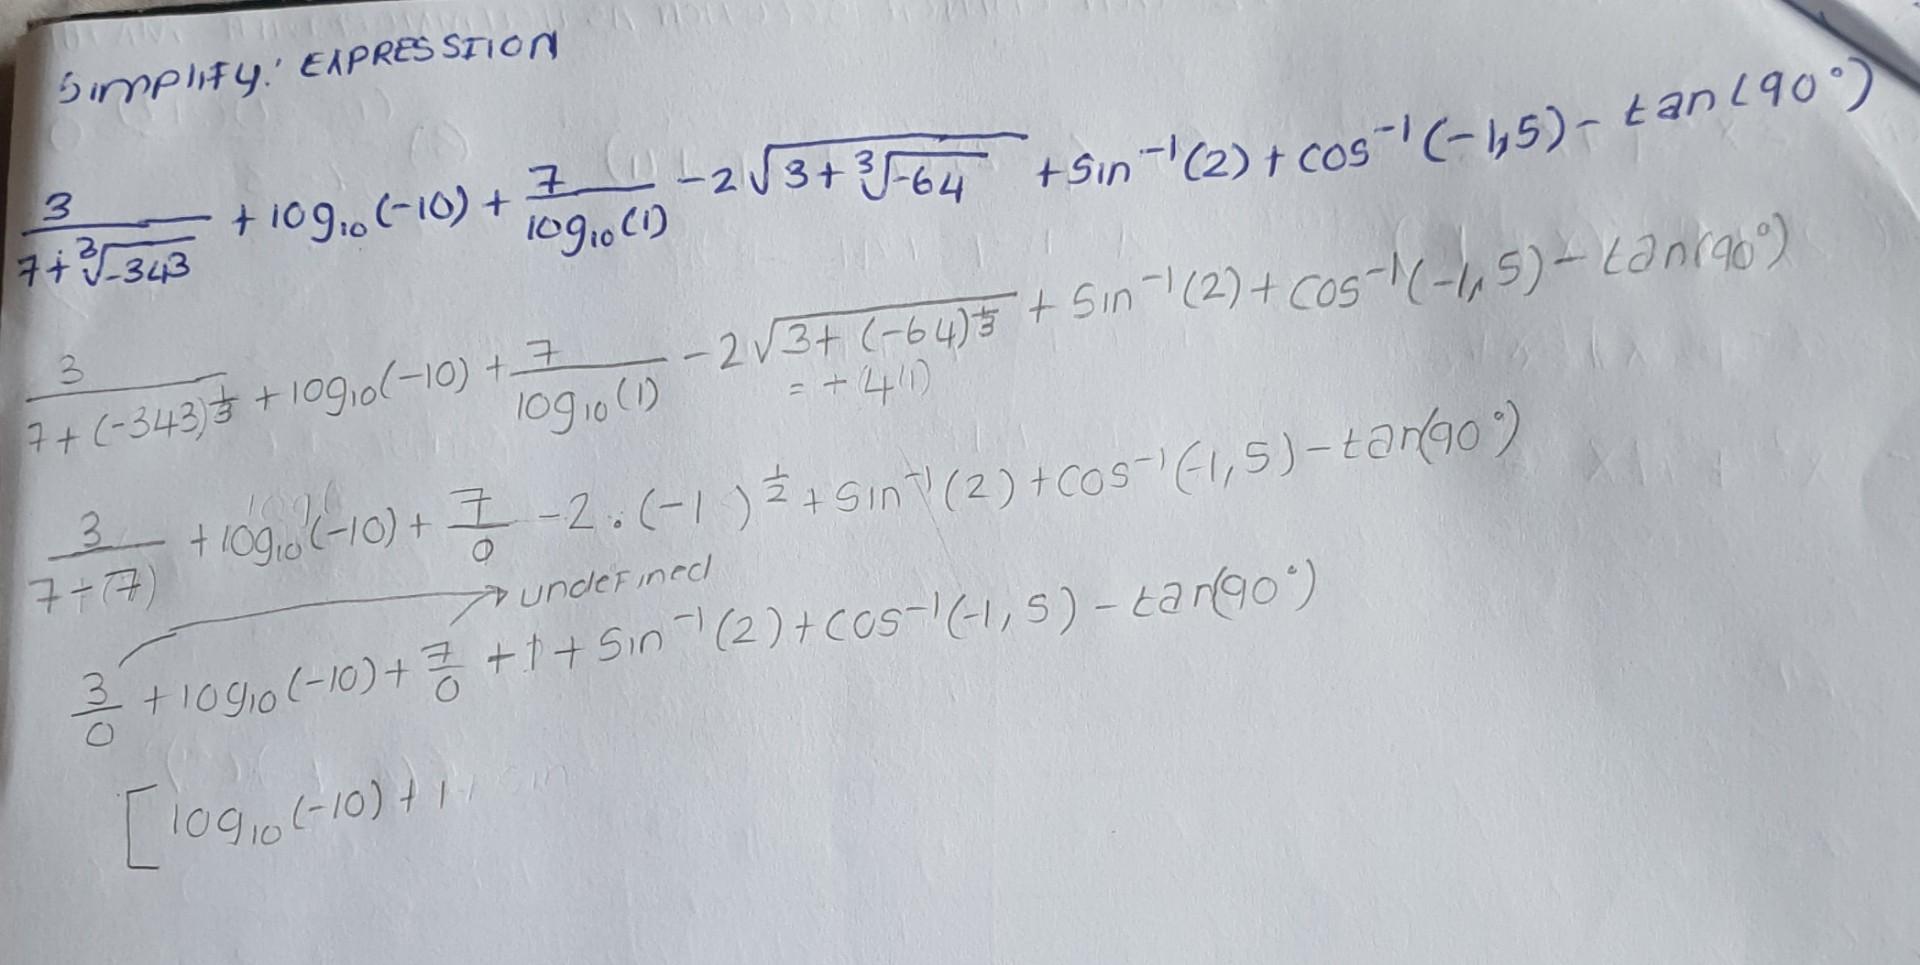 Simplify: EXPRESSTION
3/(7+∛-343) + log₁₀(-10) + 7/log₁₀(1) - 2√(3+∛-64) + sin⁻¹(2) + cos⁻¹(-1,5) - tan(90°)
3/(7+(-343)^(1/3)) + log₁₀(-10) + 7/log₁₀(1) - 2√(3+(-64)^(1/3)) + sin⁻¹(2) + cos⁻¹(-1,5) - tan(90°)
= +4(1)
3/(7+(7)) + log₁₀(-10) + 7/0 - 2.(-1)^(1/2) + sin⁻¹(2) + cos⁻¹(-1,5) - tan(90°)
→ undefined
3/0 + log₁₀(-10) + 7/0 + 1 + sin⁻¹(2) + cos⁻¹(-1,5) - tan(90°)
[log₁₀(-10) + 1